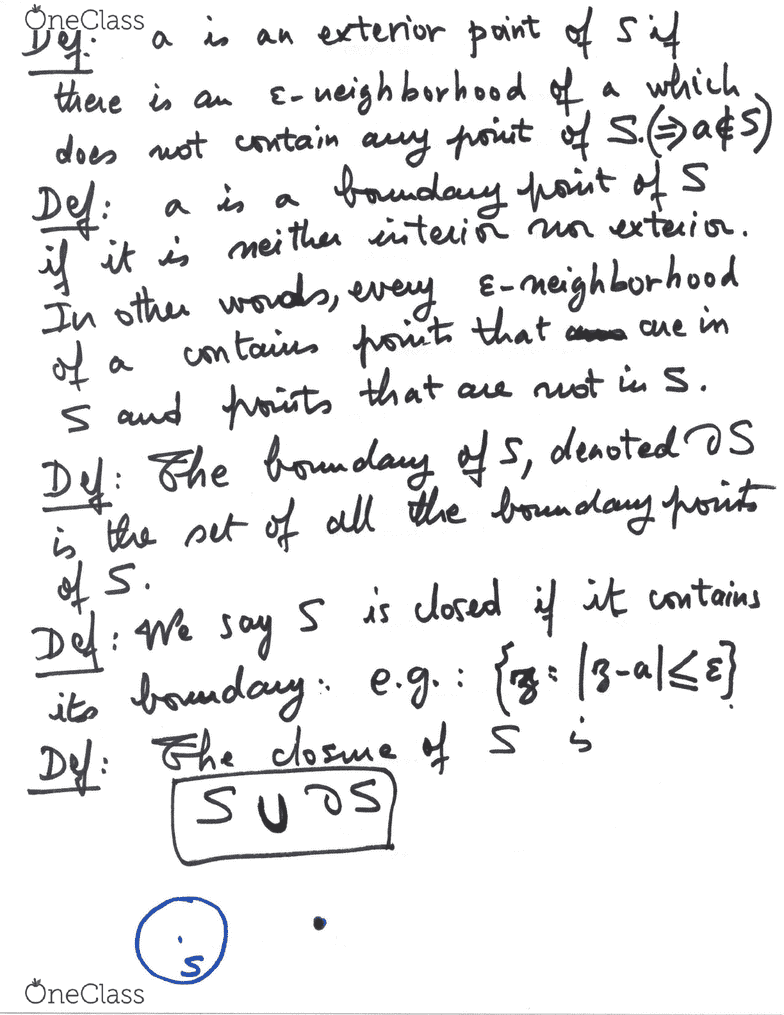 OneClass
Def: a is an exterior point of S if
there is an ε-neighborhood of a which
does not contain any point of S. (⇒ a ∉ S)
Def: a is a boundary point of S
if it is neither interior nor exterior.
In other words, every ε-neighborhood
of a contains points that are in
S and points that are not in S.
Def: The boundary of S, denoted ∂S
is the set of all the boundary points
of S.
Def: We say S is closed if it contains
its boundary: e.g.: {z: |z-a| ≤ ε}
Def: The closure of S is
S ∪ ∂S
S
OneClass